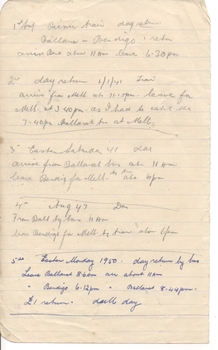 1st day return
Ballarat - Bendigo return
arrive Bdo about 11 am leave 6.30 pm
2nd day return 6/1/41 Train
arrive from Melb at 11-15 pm. leave for
Melb at 3.40 pm as I had to catch the
7.40 pm Ballarat train at Melb.
3rd Easter Saturday 41
arrive from Ballarat bus at 11 am
leave Bendigo for Melb by train 6 pm
4th Aug 43
From Ball by bus 11 am
leave Bendigo for Melb by train about 6 pm
5th Easter Monday 1950. day return by bus
Leave Ballarat 8.40 am arr about 11 am
" Bendigo 6.12 pm " Ballarat 8.44 pm.
£1 return. day